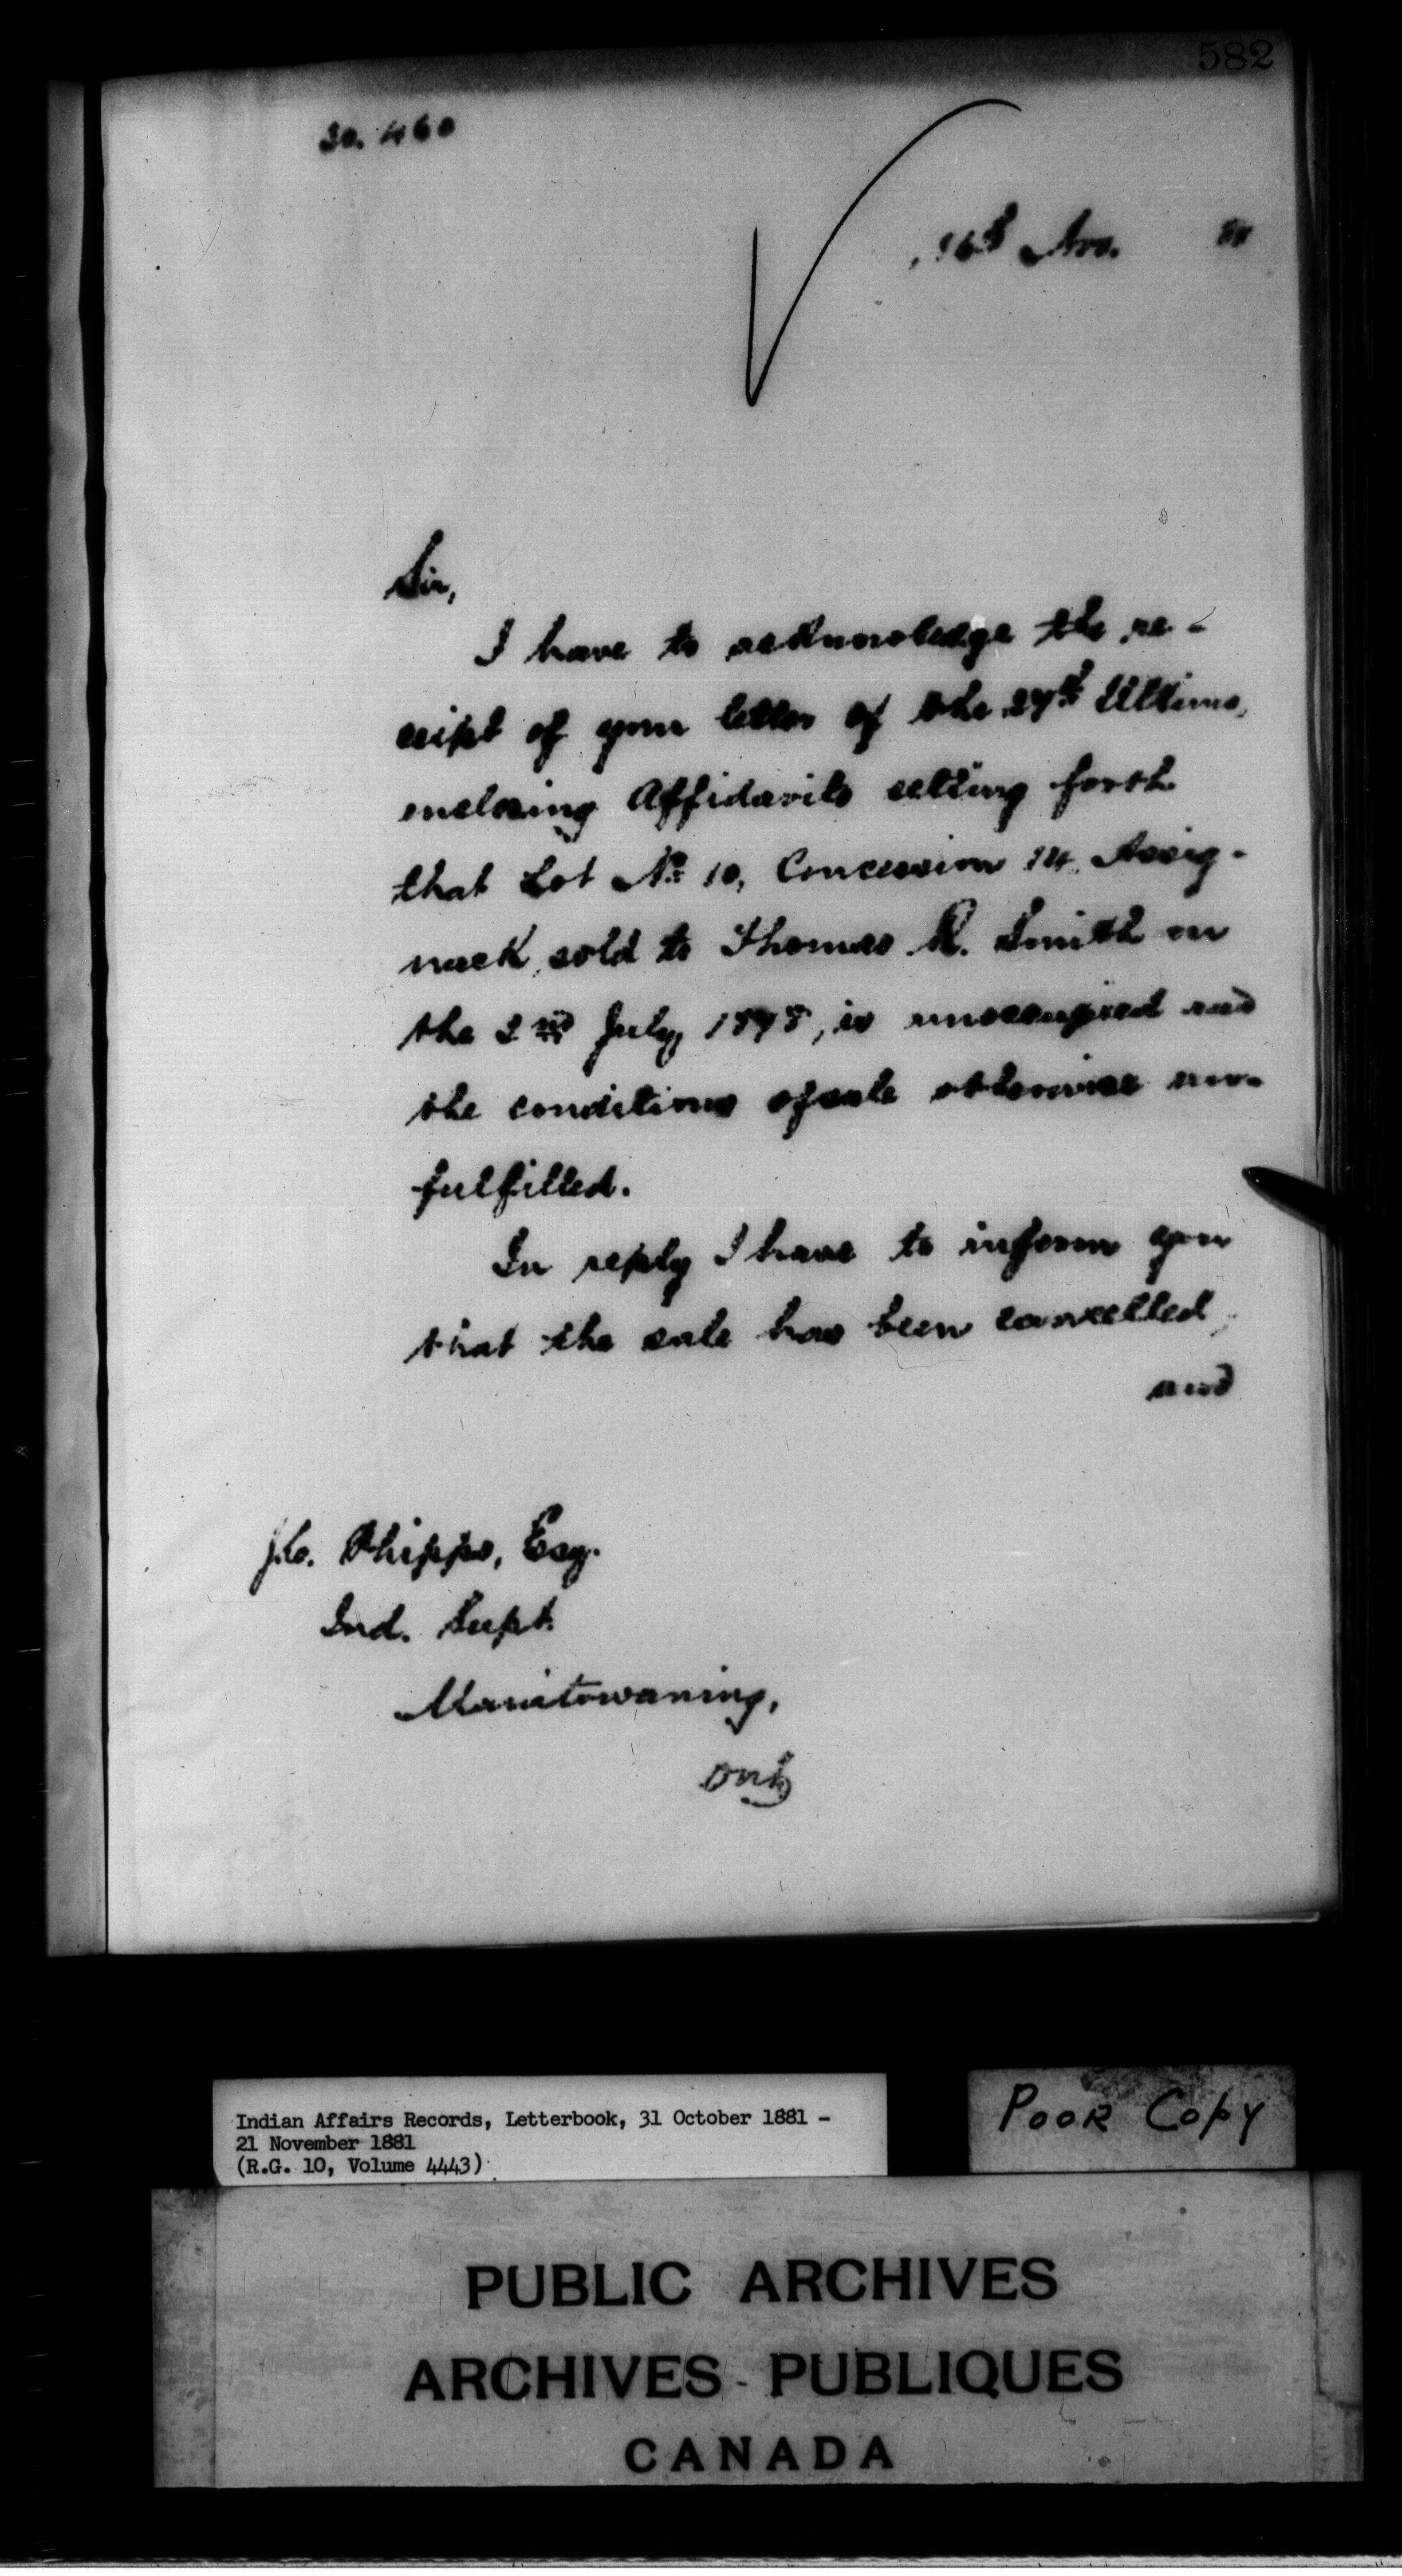 582
30.460
16th Nov. 81
Sir,
I have to acknowledge the re-
ceipt of your letter of the 27th Ultimo,
enclosing Affidavits setting forth
that Lot No. 10, Concession 14, Assig-
nack, sold to Thomas R. Smith on
the 2nd July, 1878, is unoccupied and
the conditions of sale otherwise un-
fulfilled.
In reply I have to inform you
that the sale has been cancelled,
and
J.C. Phipps, Esq.
Ind. Supt.
Manitowaning,
Ont
Indian Affairs Records, Letterbook, 31 October 1881 -
21 November 1881
(R.G. 10, Volume 4443)
POOR COPY
PUBLIC ARCHIVES
ARCHIVES PUBLIQUES
CANADA